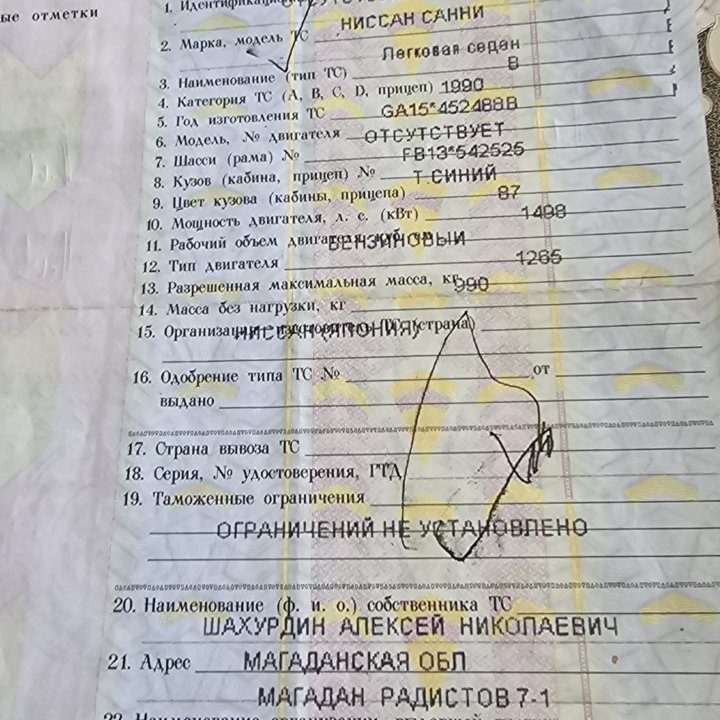 ые отметки
1.
НИССАН САННИ
2. Марка, модель ТС
Легковая седан
3. Наименование (тип ТС)
B
4. Категория ТС (А, В, С, D, прицеп) 1990
5. Год изготовления ТС
GA15*452488B
6. Модель, № двигателя
ОТСУТСТВУЕТ
7. Шасси (рама) №
FB13*542525
8. Кузов (кабина, прицеп) №
Т.СИНИЙ
9. Цвет кузова (кабины, прицепа)
87
10. Мощность двигателя, л. с. (кВт)
1498
11. Рабочий объем двигателя,
БЕНЗИНОВЫЙ
12. Тип двигателя
1265
13. Разрешенная максимальная масса, кг
990
14. Масса без нагрузки, кг
15. Организация-изготовитель ТС (страна)
НИССАН (ЯПОНИЯ)
16. Одобрение типа ТС № от
выдано
17. Страна вывоза ТС
18. Серия, № удостоверения, ГТД
19. Таможенные ограничения
ОГРАНИЧЕНИЙ НЕ УСТАНОВЛЕНО
20. Наименование (ф. и. о.) собственника ТС
ШАХУРДИН АЛЕКСЕЙ НИКОЛАЕВИЧ
21. Адрес МАГАДАНСКАЯ ОБЛ
МАГАДАН РАДИСТОВ 7-1